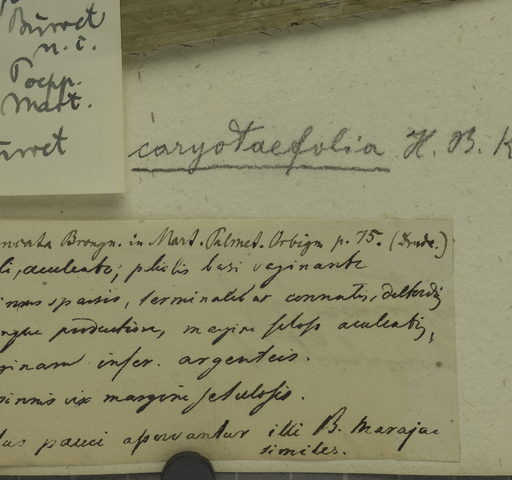 Burret
n. c.
Poepp.
Mart.
caryotaefolia H. B. K
Brongn. in Mart. Palmet. Orbign p. 75. (Drude.)
aculeato; petiolis basi vaginante
sparsis, terminalibus connatis, deltoidis
productiore, margine setoso aculeatis,
infer. argenteis.
pinnis vix margine setulosis.
pauci aservantur illi B. Marajae
similes.